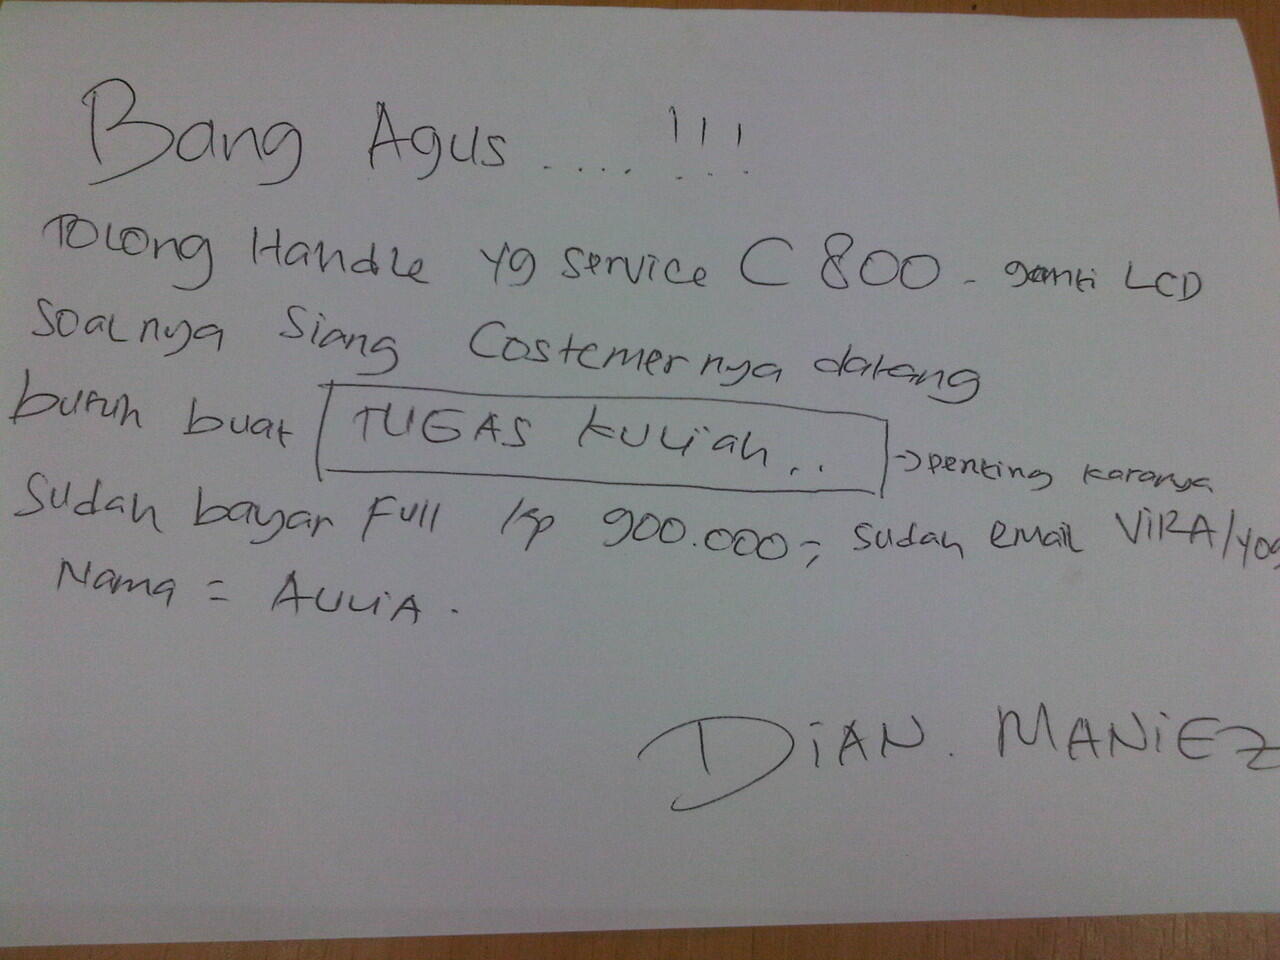 Bang Agus ....... !!!
Tolong Handle yg service C 800 - ganti LCD
Soalnya Siang Costemernya datang
butuh buat TUGAS kuliah.. → penting katanya
Sudah bayar Full Rp 900.000,- sudah email ViRA/
Nama = AuliA.
DiAN. MANiEZ